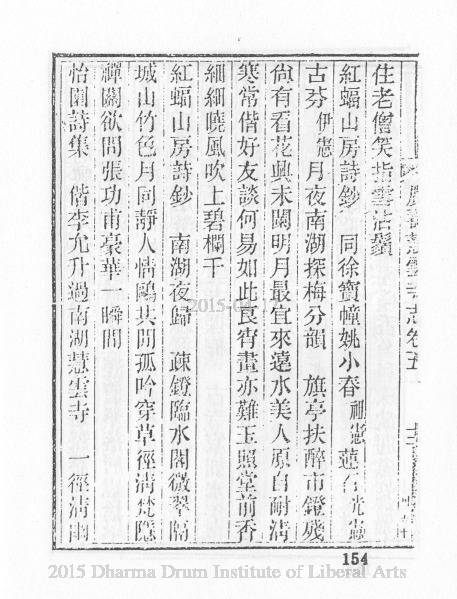 住老僧笑指雲沾鬚
紅蝠山房詩鈔 同徐寶幢姚小春 蓮石
古芬伊憲月夜南湖探梅分韻 旗亭扶醉市鐙殘
尙有看花興未闌明月最宜來遠水美人原自耐淸
寒常偕好友談何易如此良宵畫亦難玉照堂前香
細細曉風吹上碧欄干
紅蝠山房詩鈔 南湖夜歸 疎鐙臨水閣微翠隔
城山竹色月同靜人情鷗共閒孤吟穿草徑淸梵隱
禪關欲問張功甫豪華一瞬間
怡園詩集 偕李允升過南湖慧雲寺 一徑淸幽
雲寺志卷五
154
2015-04
2015 Dharma Drum Institute of Liberal Arts